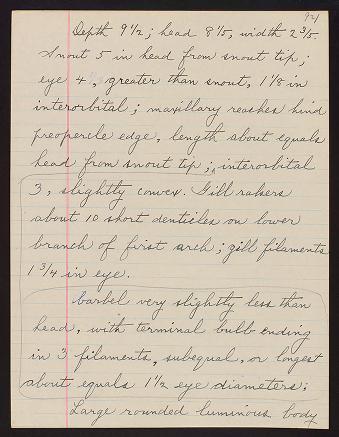 94
Depth 9 1/2; head 8 1/5, width 2 3/5.
Snout 5 in head from snout tip;
eye 4, greater than snout, 1 1/8 in
interorbital; maxillary reaches hind
preopercle edge, length about equals
head from snout tip; interorbital
3, slightly convex. Gill rakers
about 10 short denticles on lower
branch of first arch; gill filaments
1 3/4 in eye.
Barbel very slightly less than
head, with terminal bulb ending
in 3 filaments, subequal, or longest
about equals 1 1/2 eye diameters.
Large rounded luminous body